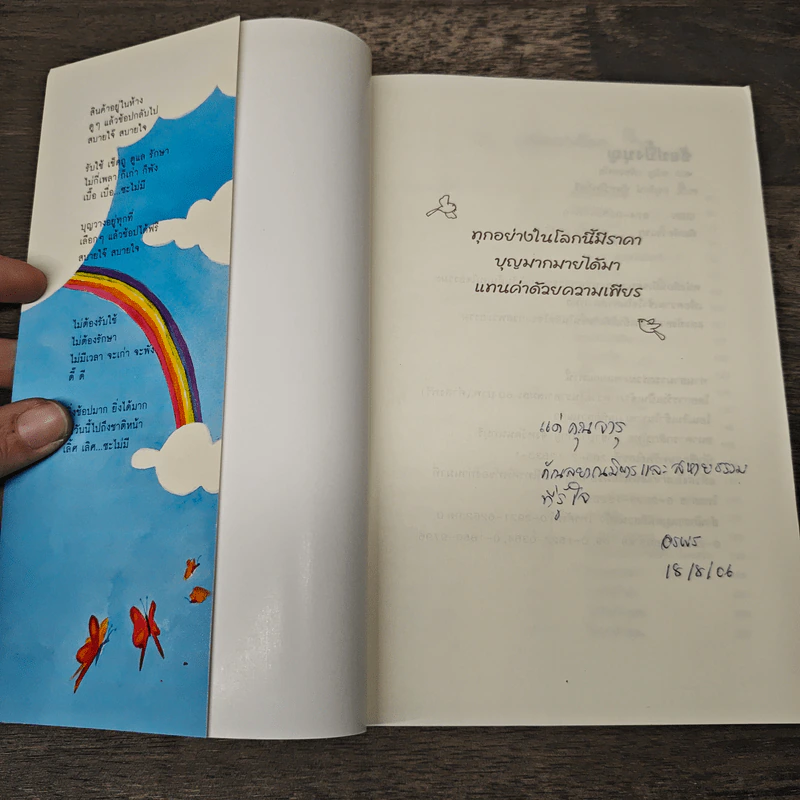 สินค้าอยู่ในห้าง
ดูๆ แล้วช้อปกลับไป
สบายใจ๊ สบายใจ
รับใช้ เช็ดถู ดูแล รักษา
ไม่กี่เพลา ก็เก่า ก็พัง
เบื้อ เบื่อ...ซะไม่มี
บุญวางอยู่ทุกที่
เลือกๆ แล้วช้อปได้ฟรี
สบายใจ๊ สบายใจ
ไม่ต้องรับใช้
ไม่ต้องรักษา
ไม่มีเวลา จะเก่า จะพัง
ดี๊ ดี
ช้อปมาก ยิ่งได้มาก
วันนี้ไปถึงชาติหน้า
เลิ้ศ เลิศ...ซะไม่มี
ช้อปปิ้งบุญ
ทุกอย่างในโลกนี้มีราคา
บุญมากมายได้มา
แทนค่าด้วยความเพียร
แด่ คุณจารุ
กัณลยาณมิตรและสหายธรรม
ที่รู้ใจ
อรพร
18/8/06